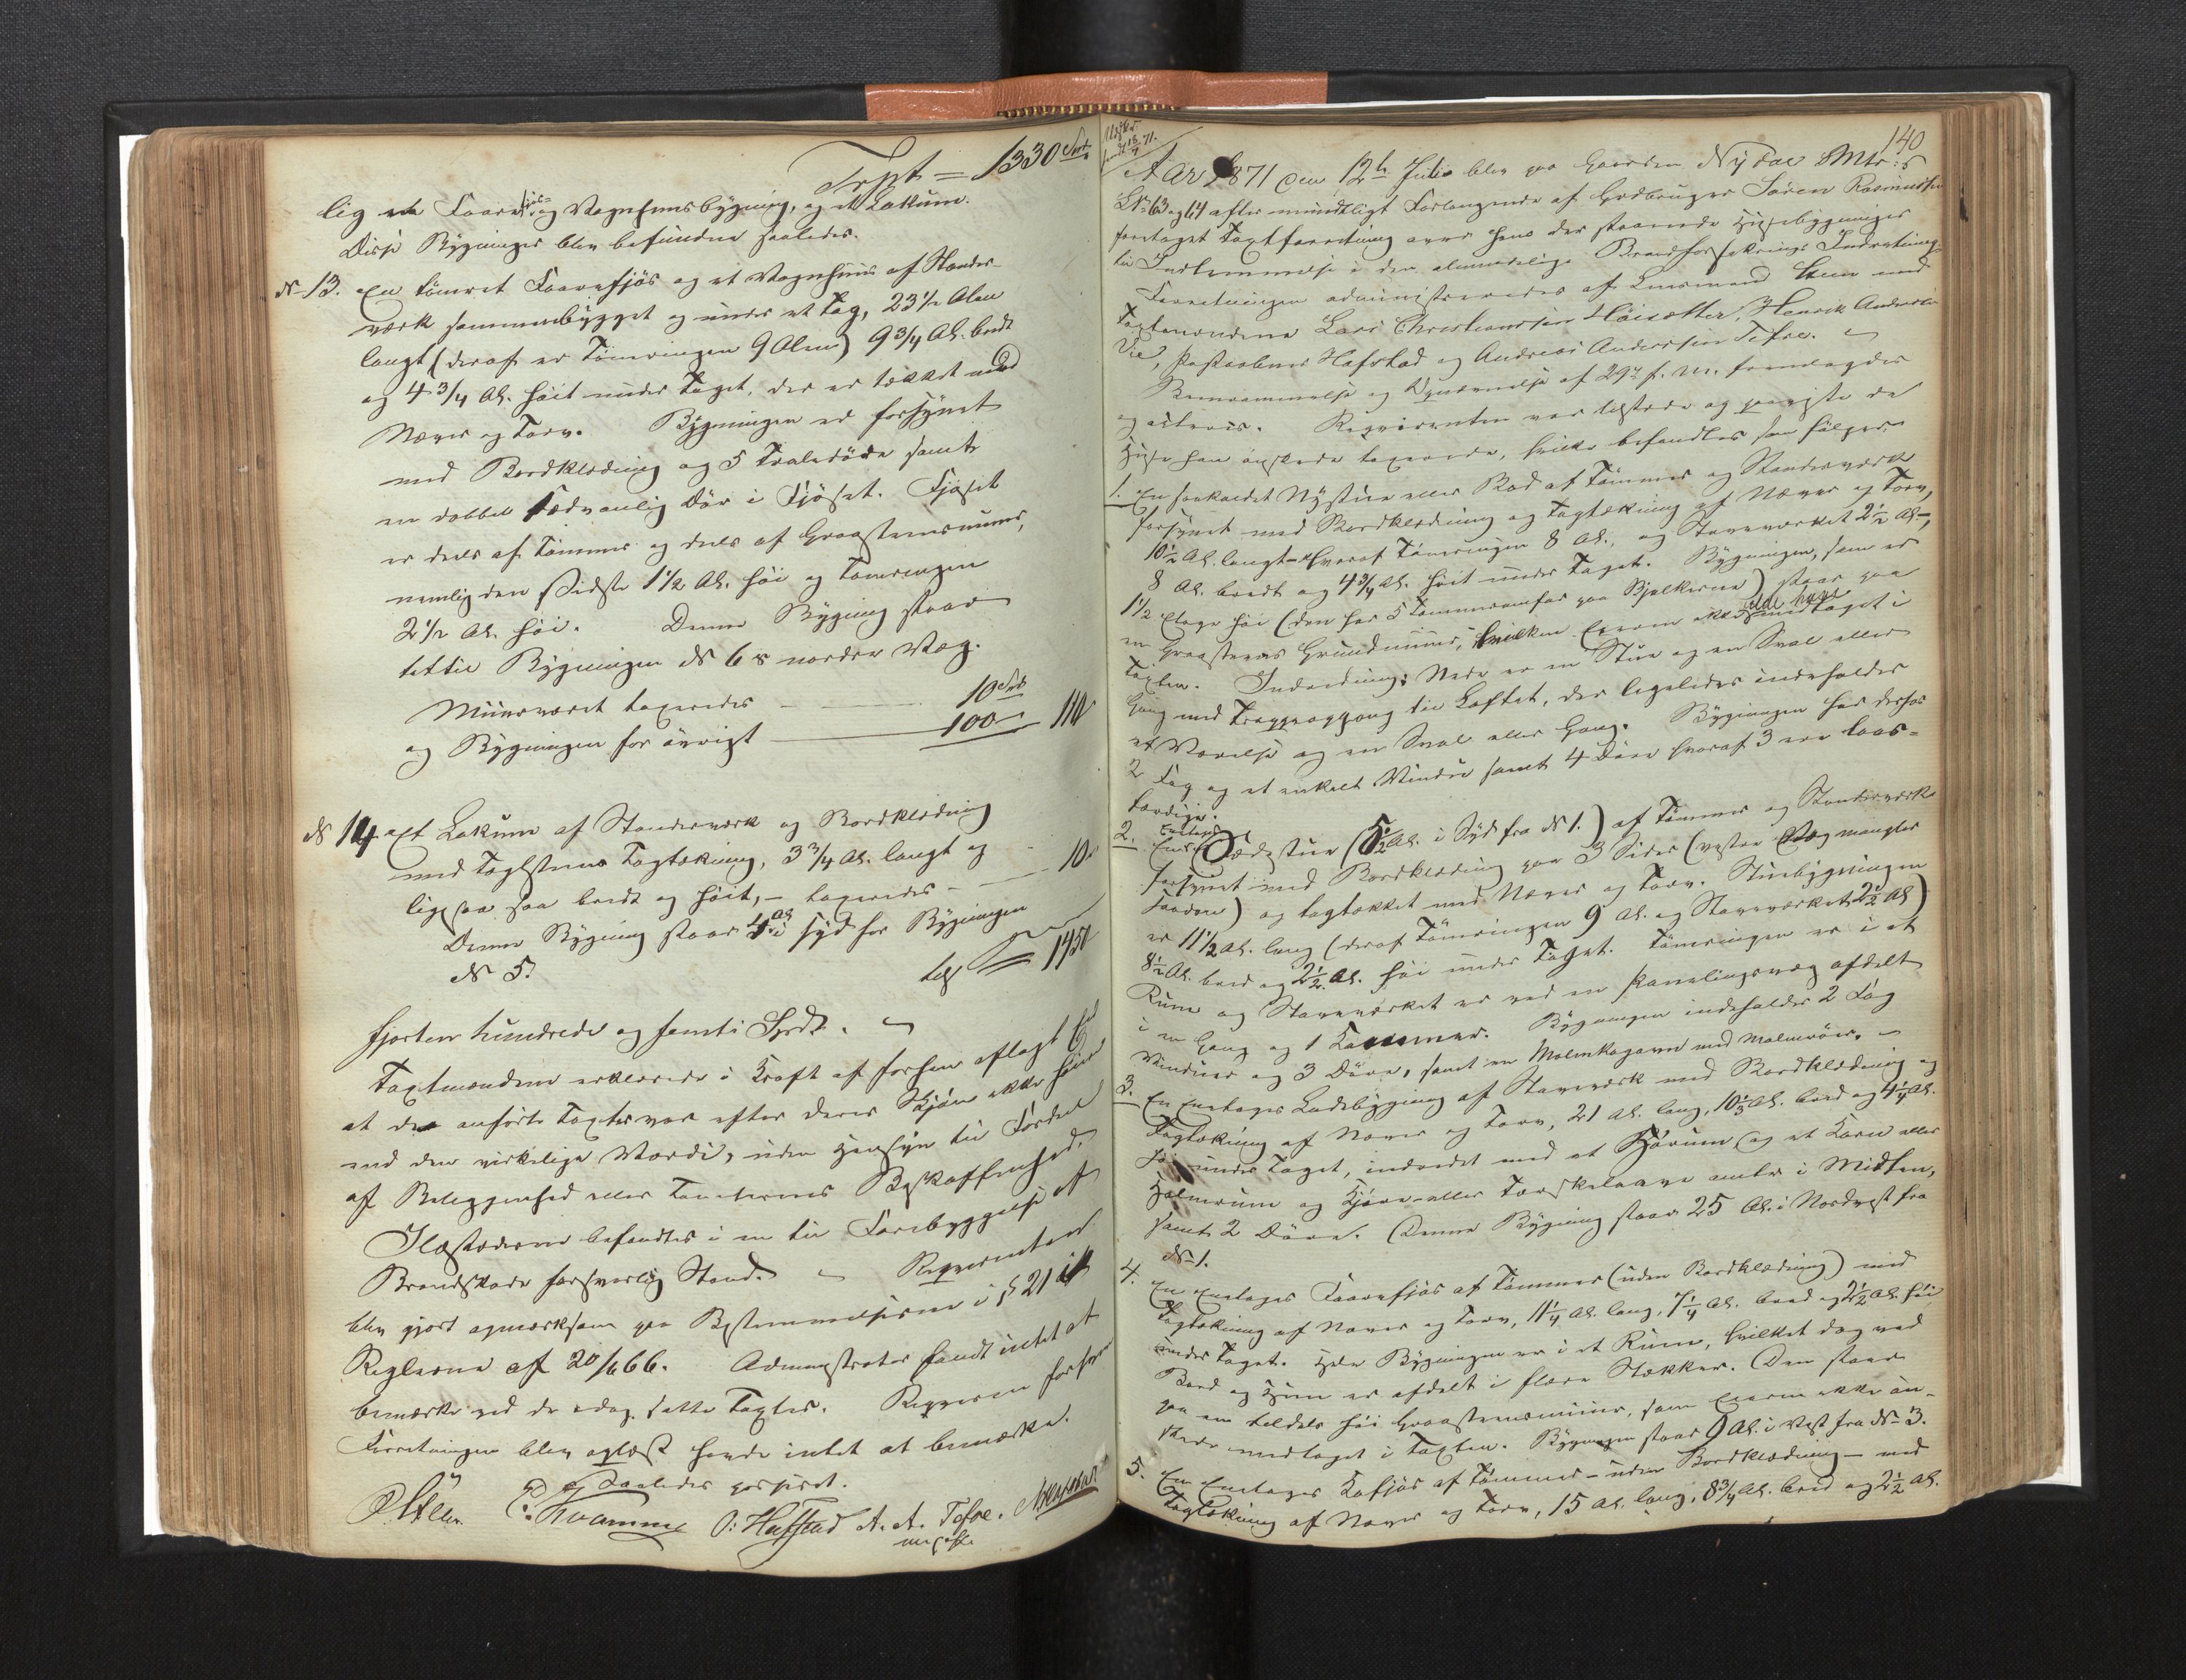 Trspt = 1330 Spd
lig et Faarefjøs- og Vognhuusbygning, og et Lokum.
Disse Bygninger blev befundne saaledes.
No 13. En tømret Faarefjøs og et Vognhuus af Stænder-
værk sammenbygget og under et Tag, 23 1/2 Alen
langt (deraf er Tømringen 9 Alen) 9 3/4 Al. bredt
og 4 3/4 Al. høit under Taget, der er tækket med
Næver og Torv. Bygningen er forsynet
med Bordklædning og 5 Døre samt
en dobbel sædvanlig Dør i Fjøset. Fjøset
er deels af Tømmer og deels af Graasteensmuur,
nemlig den sidste 1 1/2 Al. høi og Tømringen
2 1/2 Al. høi. Denne Bygning staar
tet til Bygningen No 6's nordre Væg.
Muurværket taxeredes — 10 Spd
og Bygningen for øvrigt — 100 " 110
No 14. Et Lokum af Stænderværk og Bordklædning
med Taglsteens Tagtækning, 3 3/4 Al. langt og
ligesaa bredt og høit, – taxeredes – 10 "
Denne Bygning staar Al. i Syd for Bygningen
No 5.
tils. 1450
fjorten hundrede og femti Spdl.
Taxtmændene erklærede i Kraft af forhen aflagt Ed
at den anførte Taxt var efter deres Skjøn ikke høiere
end den virkelige Værdi, uden Hensyn til Fordele
af Beliggenhed eller Tomternes Beskaffenhed.
Ildstederne befandtes i en til Forebyggelse af
Brandskade forsvarlig Stand. – Reqvirenten
blev gjort opmærksom paa Bestemmelserne i § 21 i
Reglerne af 20/1 66. Administrator fandt intet at
bemærke ved de idag satte Taxter. Reqvirenten
Forretningen blev oplæst havde intet at bemærke.
Saaledes passeret.
Steen E. Kvamme O: Hafstad A. A. Tefre.
140
Aar 1871 den 12te Juli blev paa Gaarden Nydal Mtr: 5
LNo 63 og 64 efter mundtligt Forlangende af Gbruger Søren Rasmussen
foretaget Taxtforretning over hans der staaende Huusebygninger
til Indlemmelse i den almindelige Brandforsikrings Indretning.
Forretningen administreredes af Lensmand Steen med
Taxtmændene Lars Christiansen Høisætter, Henrik Andersen
Vie, Postaabner Hafstad og Andreas Andersen Tefre.
Berammelse og Opnævnelse af 29de f. M. fremlagdes
og oplæses. Reqvirenten var tilstede og paaviste de
Huse han ønskede taxerede, hvilke befandtes som følger:
1. En saakaldet Nystue eller Bod af Tømmer og Stænderværk
forsynet med Bordklædning og Tagtækning af Næver og Torv,
10 1/2 Al. langt – hvoraf Tømringen 8 Al., og Stavværket 2 1/2 Al. –,
8 Al. bredt og 4 3/4 Al. høit under Taget. Bygningen, som er
1 1/2 Etage høi (den har 5 Tømmeromfar paa Bjelkerne) staar paa
en Graasteens Grundmuur, hvilken Eieren ikke vilde have medtaget i
Taxten. Indredning: Nede er en Stue og en Sval eller
Gang med Trappeopgang til Loftet, der ligeledes indeholder
et Værelse og en Sval eller Gang. Bygningen har derhos
2 Fag og et enkelt Vindue samt 4 Døre hvoraf 3 ere laas-
færdige.
2. En Etages Ildstue (5 1/2 Al. i Syd fra No 1.) af Tømmer og Stænderværk
forsynet med Bordklædning paa 3 Sider (vestre Væg mangler
saadan) og tagtækket med Næver og Torv. Stuebygningen
er 11 1/2 Al. lang (deraf Tømringen 9 Al. og Stavværket 2 1/2 Al)
8 1/2 Al. bred og 2 1/2 Al. høi under Taget. Tømringen er i et
Rum og Stavværket er ved en Panelingsvæg afdelt
i en Gang og 1 Kammer. Bygningen indeholder 2 Fag
Vinduer og 3 Døre, samt en Malmkogovn med Malmrør. –
3. En Enetages Ladebygning af Stavværk med Bordklædning og
Tagtækning af Næver og Torv, 21 Al. lang, 10 1/3 Al. bred og 4 1/4 Al.
høi under Taget, indredet med et Hørum og et Korn eller
Halmrum og Kjøre- eller Tærskelaave midt i Midten,
samt 2 Døre. Denne Bygning staar 25 Al. i Nordvest fra
No 1.
4. En Enetages Faarefjøs af Tømmer (uden Bordklædning) med
Tagtækning af Næver og Torv, 11 1/4 Al. lang, 7 1/4 Al. bred og 2 1/2 Al. høi
under Taget. Hele Bygningen er i et Rum, hvilket dog ved
Bord og Hun er afdelt i flere Stækker. Den staar
paa en tildels høi Graasteensmuur, som Eieren ikke øn-
skede medtaget i Taxten. Bygningen staar 9 Al. i Vest fra No 3.
5. En Enetages Kofjøs af Tømmer – uden Bordklædning – med
Tagtækning af Næver og Torv, 15 Al. lang, 8 3/4 Al. bred og 2 1/2 Al.